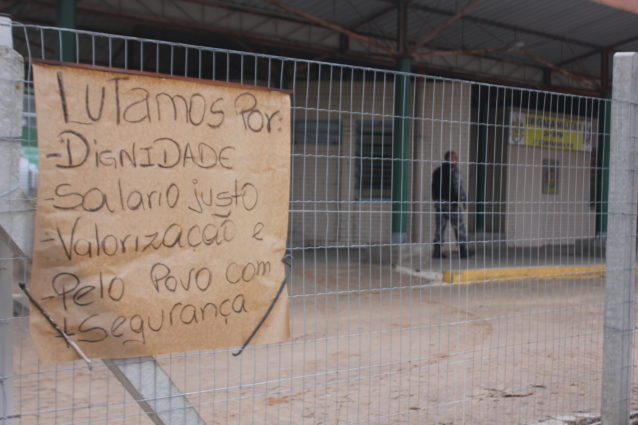 LUTAMOS POR:
- DIGNIDADE
- Salario justo
- Valorização e
- Pelo Povo com
segurança